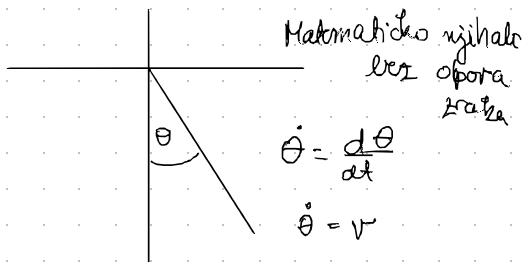 Matematičko njihalo
bez opora
zraka
θ
θ̇ = dθ/dt
θ̇ = v